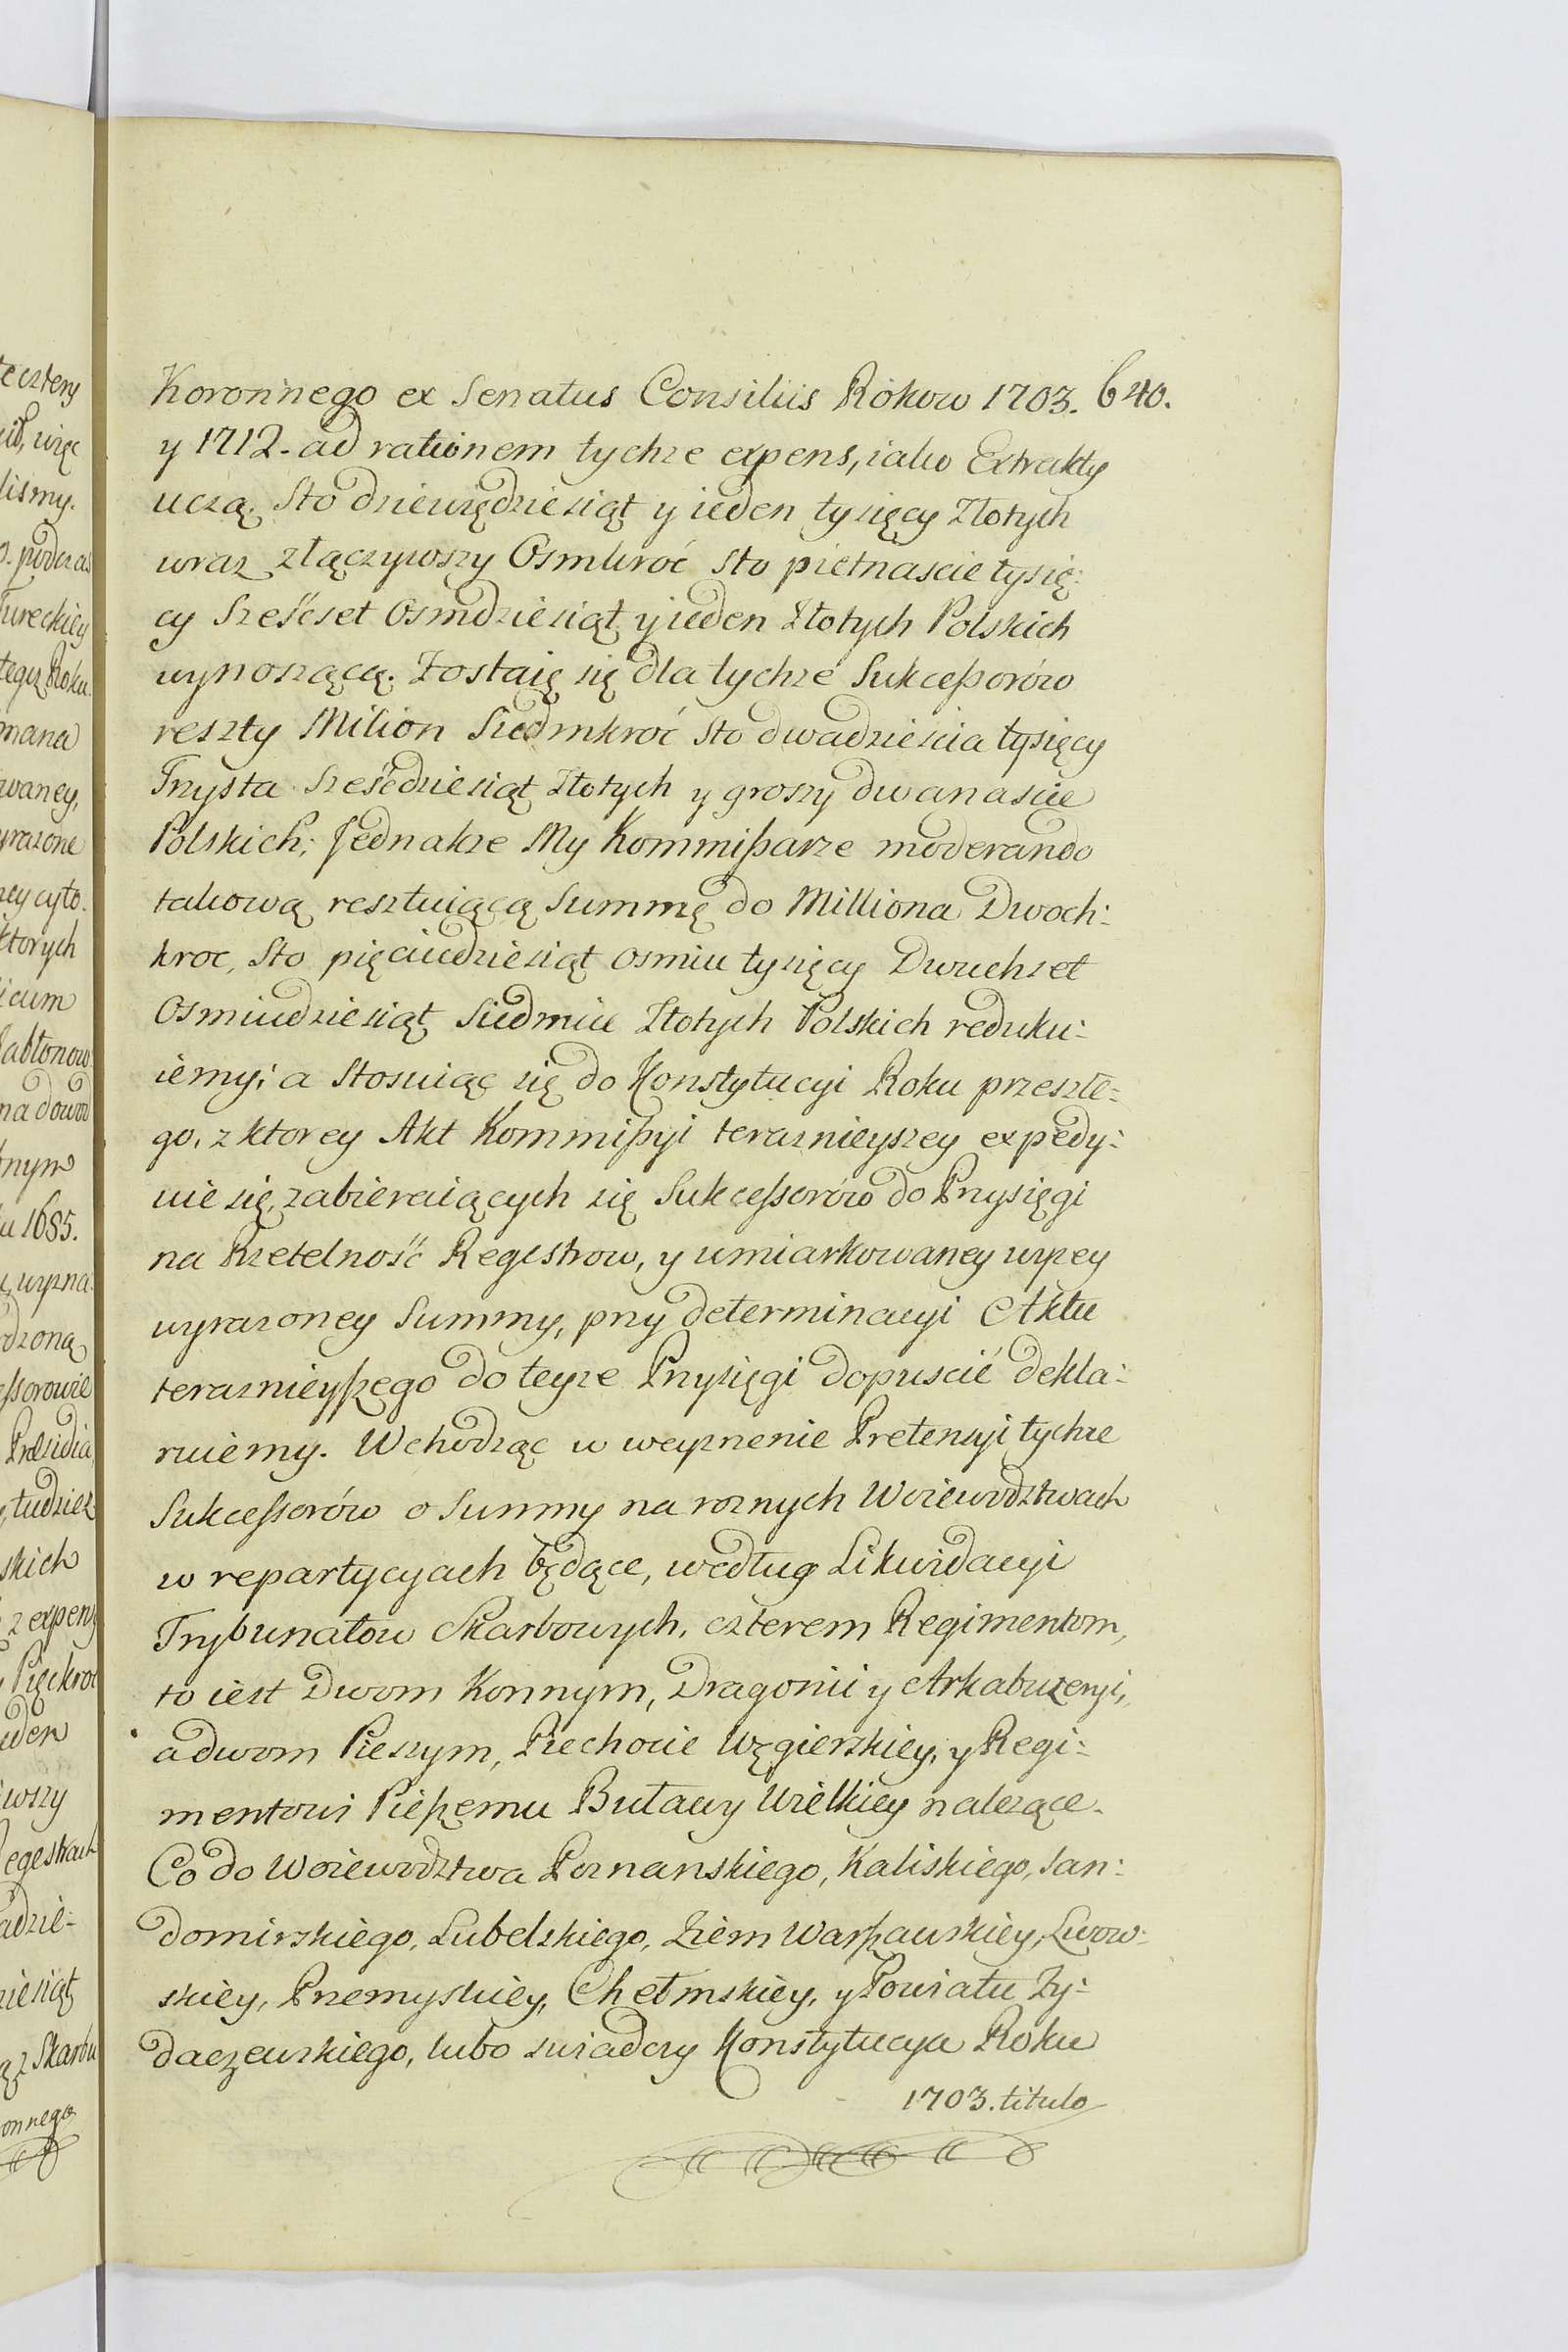 Koronnego ex Senatus Consiliis Rokow 1703. 640.
y 1712. ad rationem tychze expens, iako Extrakty
uczą. Sto dziewiędziesiąt y ieden tysięcy Złotych
wraz złączywszy Osmkroć sto pietnascie tysię:
cy Sześćset Osmdziesiąt y ieden Złotych Polskich
wynoszącą. Zostaię się dla tychże Sukceßorów
reszty Milion Siedmkroć sto dwadzieścia tysięcy
Trzysta Sześćdziesiąt Złotych y groszy dwanascie
Polskich; Jednakze My Kommißarze moderando
takową resztuiącą Summę do Milliona Dwoch:
kroc, Sto pięciudziesiąt osmiu tysięcy Dwuchset
Osmiudziesiąt Siedmiu Złotych Polskich reduku:
iemy; a Stosuiąc się do Konstytucyi Roku przeszłe:
go, z ktorey Akt Kommißyi terasnieyszey expedy:
uie się, zabieraiących się Sukcessorów do Przysięgi
na Rzetelność Regestrow, y umiarkowaney wyzey
wyrazoney Summy, przy determinacyi Aktu
terasnieyszego do teyze Przysięgi dopuścić dekla:
ruiemy. Wchodząc w weyznenie Pretensyi tychze
Sukcessorów o Summy na roznych Woiewodztwach
w repartycyach będące, według Likwidacyi
Trybunałow Skarbowych, czterem Regimentom,
to iest Dwom Konnym, Dragonii y Arkabuzeryi,
a dwom Pieszym, Piechocie Węgierskiey, y Regi:
mentowi Pieszemu Buławy Wielkiey nalezące.
Co do Woiewodztwa Poznanskiego, Kaliskiego, San:
domirskiego, Lubelskiego, Ziem Warszawskiey, Lwow:
skiey, Przemyskiey, Chełmskiey, y Powiatu Zy:
daczewskiego, lubo swiadczy Konstytucya Roku
1703. titulo